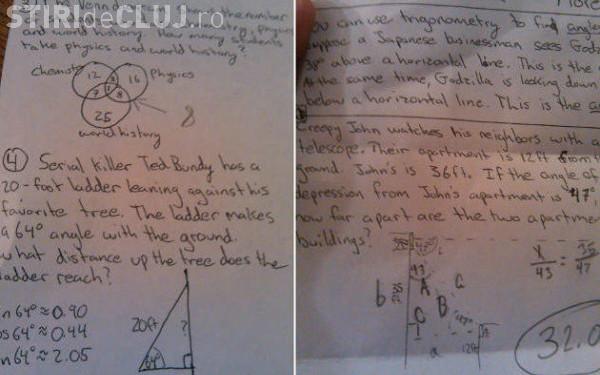 STIRIdeCLUJ.ro
the number
physics
and world history. How many students
take physics and world history?
Chemistry
physics
12
16
7
1
8
25
8
world history
④ Serial Killer Ted Bundy has a
20-foot ladder leaning against his
favorite tree. The ladder makes
a 64° angle with the ground.
What distance up the tree does the
ladder reach?
64° ≈ 0.90
64° ≈ 0.44
64° ≈ 2.05
20ft
?
64°
you can use trigonometry to find angle
suppose a Japanese businessman sees Godz
above a horizontal line. This is the
the same time, Godzilla is looking down
below a horizontal line. This is the
Creepy John watches his neighbors with a
telescope. Their apartment is 12ft from
ground. John's is 36ft. If the angle of
depression from John's apartment is 47°,
how far apart are the two apartme
buildings?
43
A
a
b
35
B
C
a
12ft
x/43 = 35/47
32.0